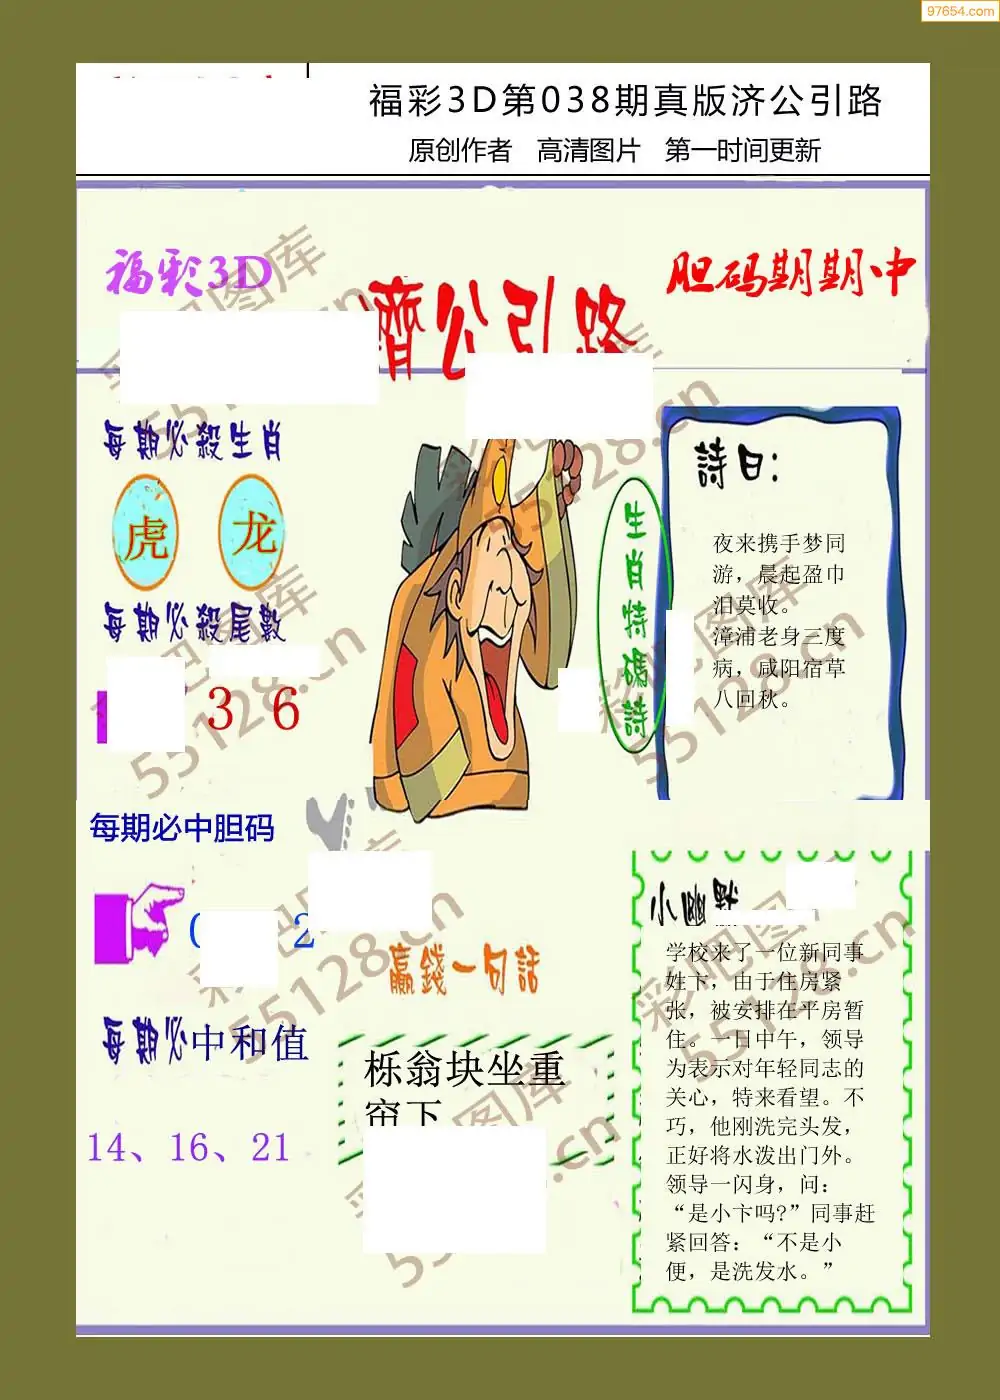 97654.com
福彩3D第038期真版济公引路
原创作者 高清图片 第一时间更新
福彩3D
胆码期期中
濟公引路
每期必殺生肖
虎 龙
每期必殺尾數
3 6
生肖特碼詩
詩曰:
夜来携手梦同
游，晨起盈巾
泪莫收。
漳浦老身三度
病，咸阳宿草
八回秋。
每期必中胆码
2
每期必中和值
14、16、21
贏錢一句話
栎翁块坐重
帘下
小幽默
学校来了一位新同事
姓卞，由于住房紧
张，被安排在平房暂
住。一日中午，领导
为表示对年轻同志的
关心，特来看望。不
巧，他刚洗完头发，
正好将水泼出门外。
领导一闪身，问：
“是小卞吗?”同事赶
紧回答：“不是小
便，是洗发水。”
彩吧图库
55128.cn